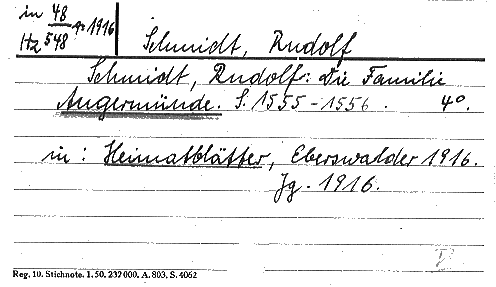 in 48
Hz 548 4° 1916
Schmidt, Rudolf
Schmidt, Rudolf: Die Familie
Angermünde. S. 1555-1556. 4°.
in: Heimatblätter, Eberswalder 1916.
Jg. 1916.
Reg. 10. Stichnote. 1. 50. 232000. A. 803, S. 4062